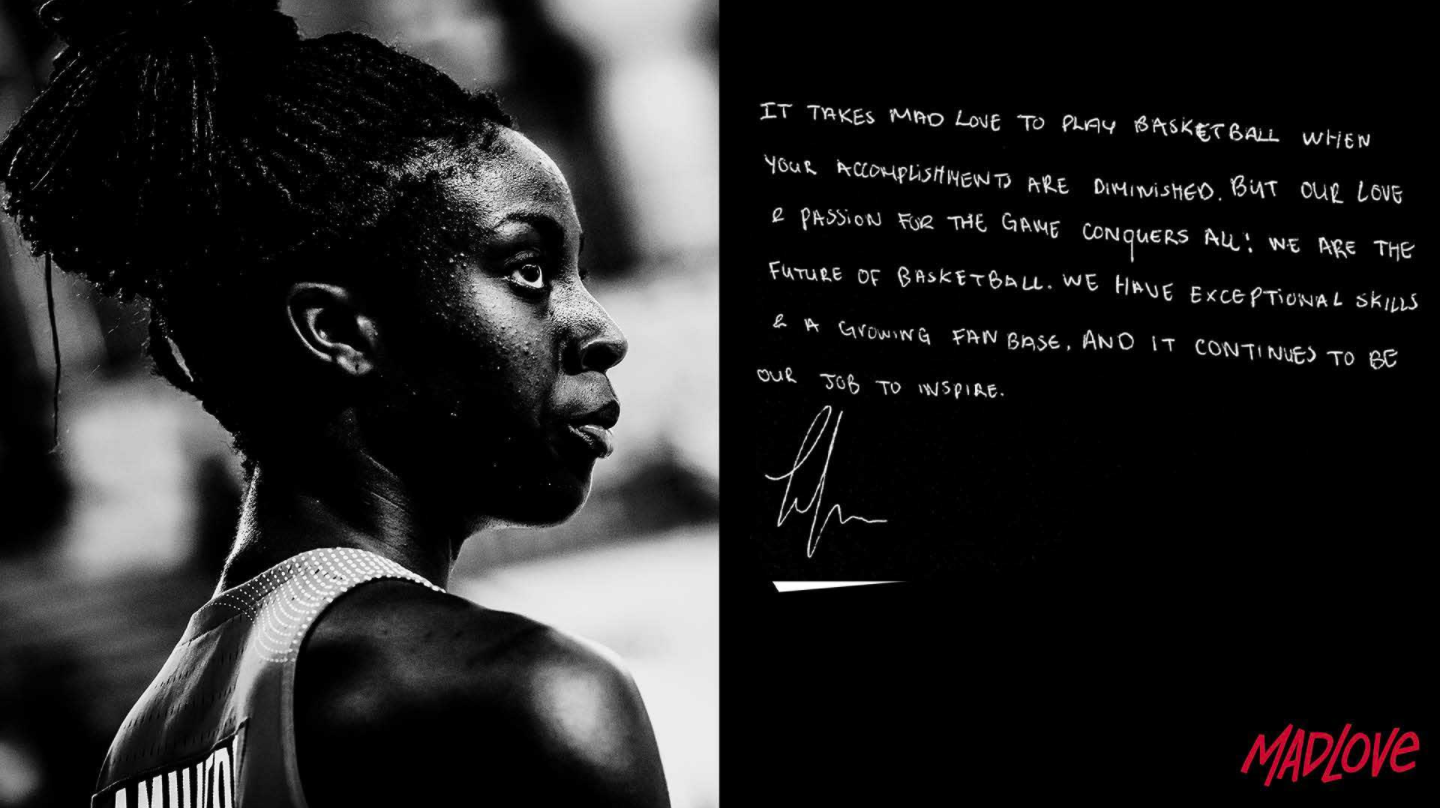 IT TAKES MAD LOVE TO PLAY BASKETBALL WHEN
YOUR ACCOMPLISHMENTS ARE DIMINISHED. BUT OUR LOVE
& PASSION FOR THE GAME CONQUERS ALL! WE ARE THE
FUTURE OF BASKETBALL. WE HAVE EXCEPTIONAL SKILLS
& A GROWING FAN BASE, AND IT CONTINUES TO BE
OUR JOB TO INSPIRE.
MADLOVE